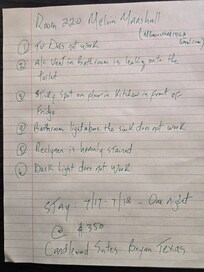 Room 220 Melvin Marshall
① TV Does not work
② A/C Vent in Bathroom is leaking onto the
toilet
③ Sticky Spot on floor in Kitchen in front of
Fridge
④ Bathroom light above the sink does not work
⑤ Recliner is heavily stained
⑥ Desk Light does not work
Stay: 7/17 - 7/18 - One night
@ $350
Candlewood Suites Bryan Texas